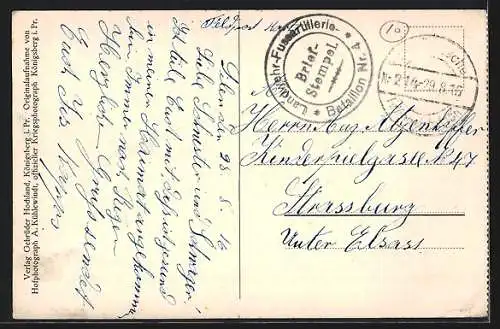 Verlag Gebrüder Hochland, Königsberg i. Pr. Originalaufnahme von
Hofphotograph A. Kühlewindt, offizieller Kriegsphotograph Königsberg i. Pr.
Feldpost
Landwehr-Fussartillerie-
Bataillon Nr. 4
Brief-
Stempel.
den 28 8. 16
Liebe Schwester und Schwager!
Teile Euch mit, daß ich gesund
in meiner Heimat angekommen
bin. Immer noch Regen
Herzliche Grüsse sendet
Euch
Nr. 2 29.8.16
Herrn Aug. Atzenhoffer
Kinderspielgasse No 47
Strassburg
Unter Elsass